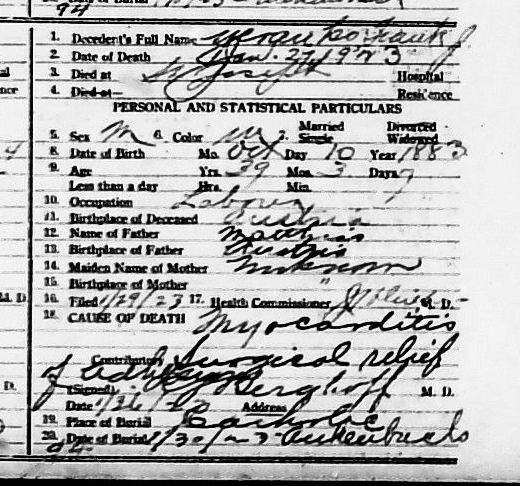 94
1. Decedent's Full Name Frank J.
2. Date of Death Jan. 27, 1923
3. Died at St Joseph Hospital
4. Died at Residence
PERSONAL AND STATISTICAL PARTICULARS
5. Sex M 6. Color W 7. Married Single Divorced Widowed
8. Date of Birth Mo. Oct Day 10 Year 1883
9. Age Yrs. 39 Mos. 3 Days
Less than a day Hrs. Min.
10. Occupation Laborer
11. Birthplace of Deceased Austria
12. Name of Father Matthis
13. Birthplace of Father Austria
14. Maiden Name of Mother Unknown
15. Birthplace of Mother "
16. Filed 1/29/23 17. Health Commissioner M. D.
18. CAUSE OF DEATH Myocarditis
Contributory Surgical relief
of
(Signed) Berghoff M. D.
Date 1/26/ Address
19. Place of Burial Catholic
20. Date of Burial 1/30/23
94